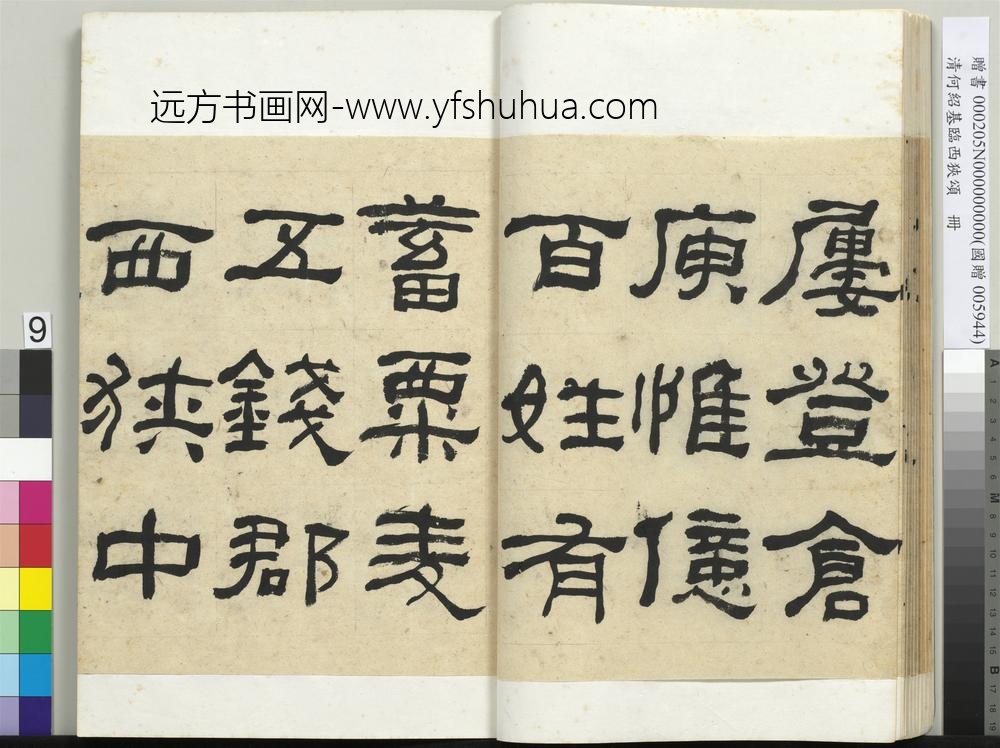 远方书画网-www.yfshuhua.com
屢登倉
庾惟億
百姓有
蓄粟麦
五錢郡
西狹中
9
贈書 000205N000000000(國贈 005944)
清何紹基臨西狹頌 冊
A 1 2 3 4 5 6 M 8 9 10 11 12 13 14 15 B 17 18 19